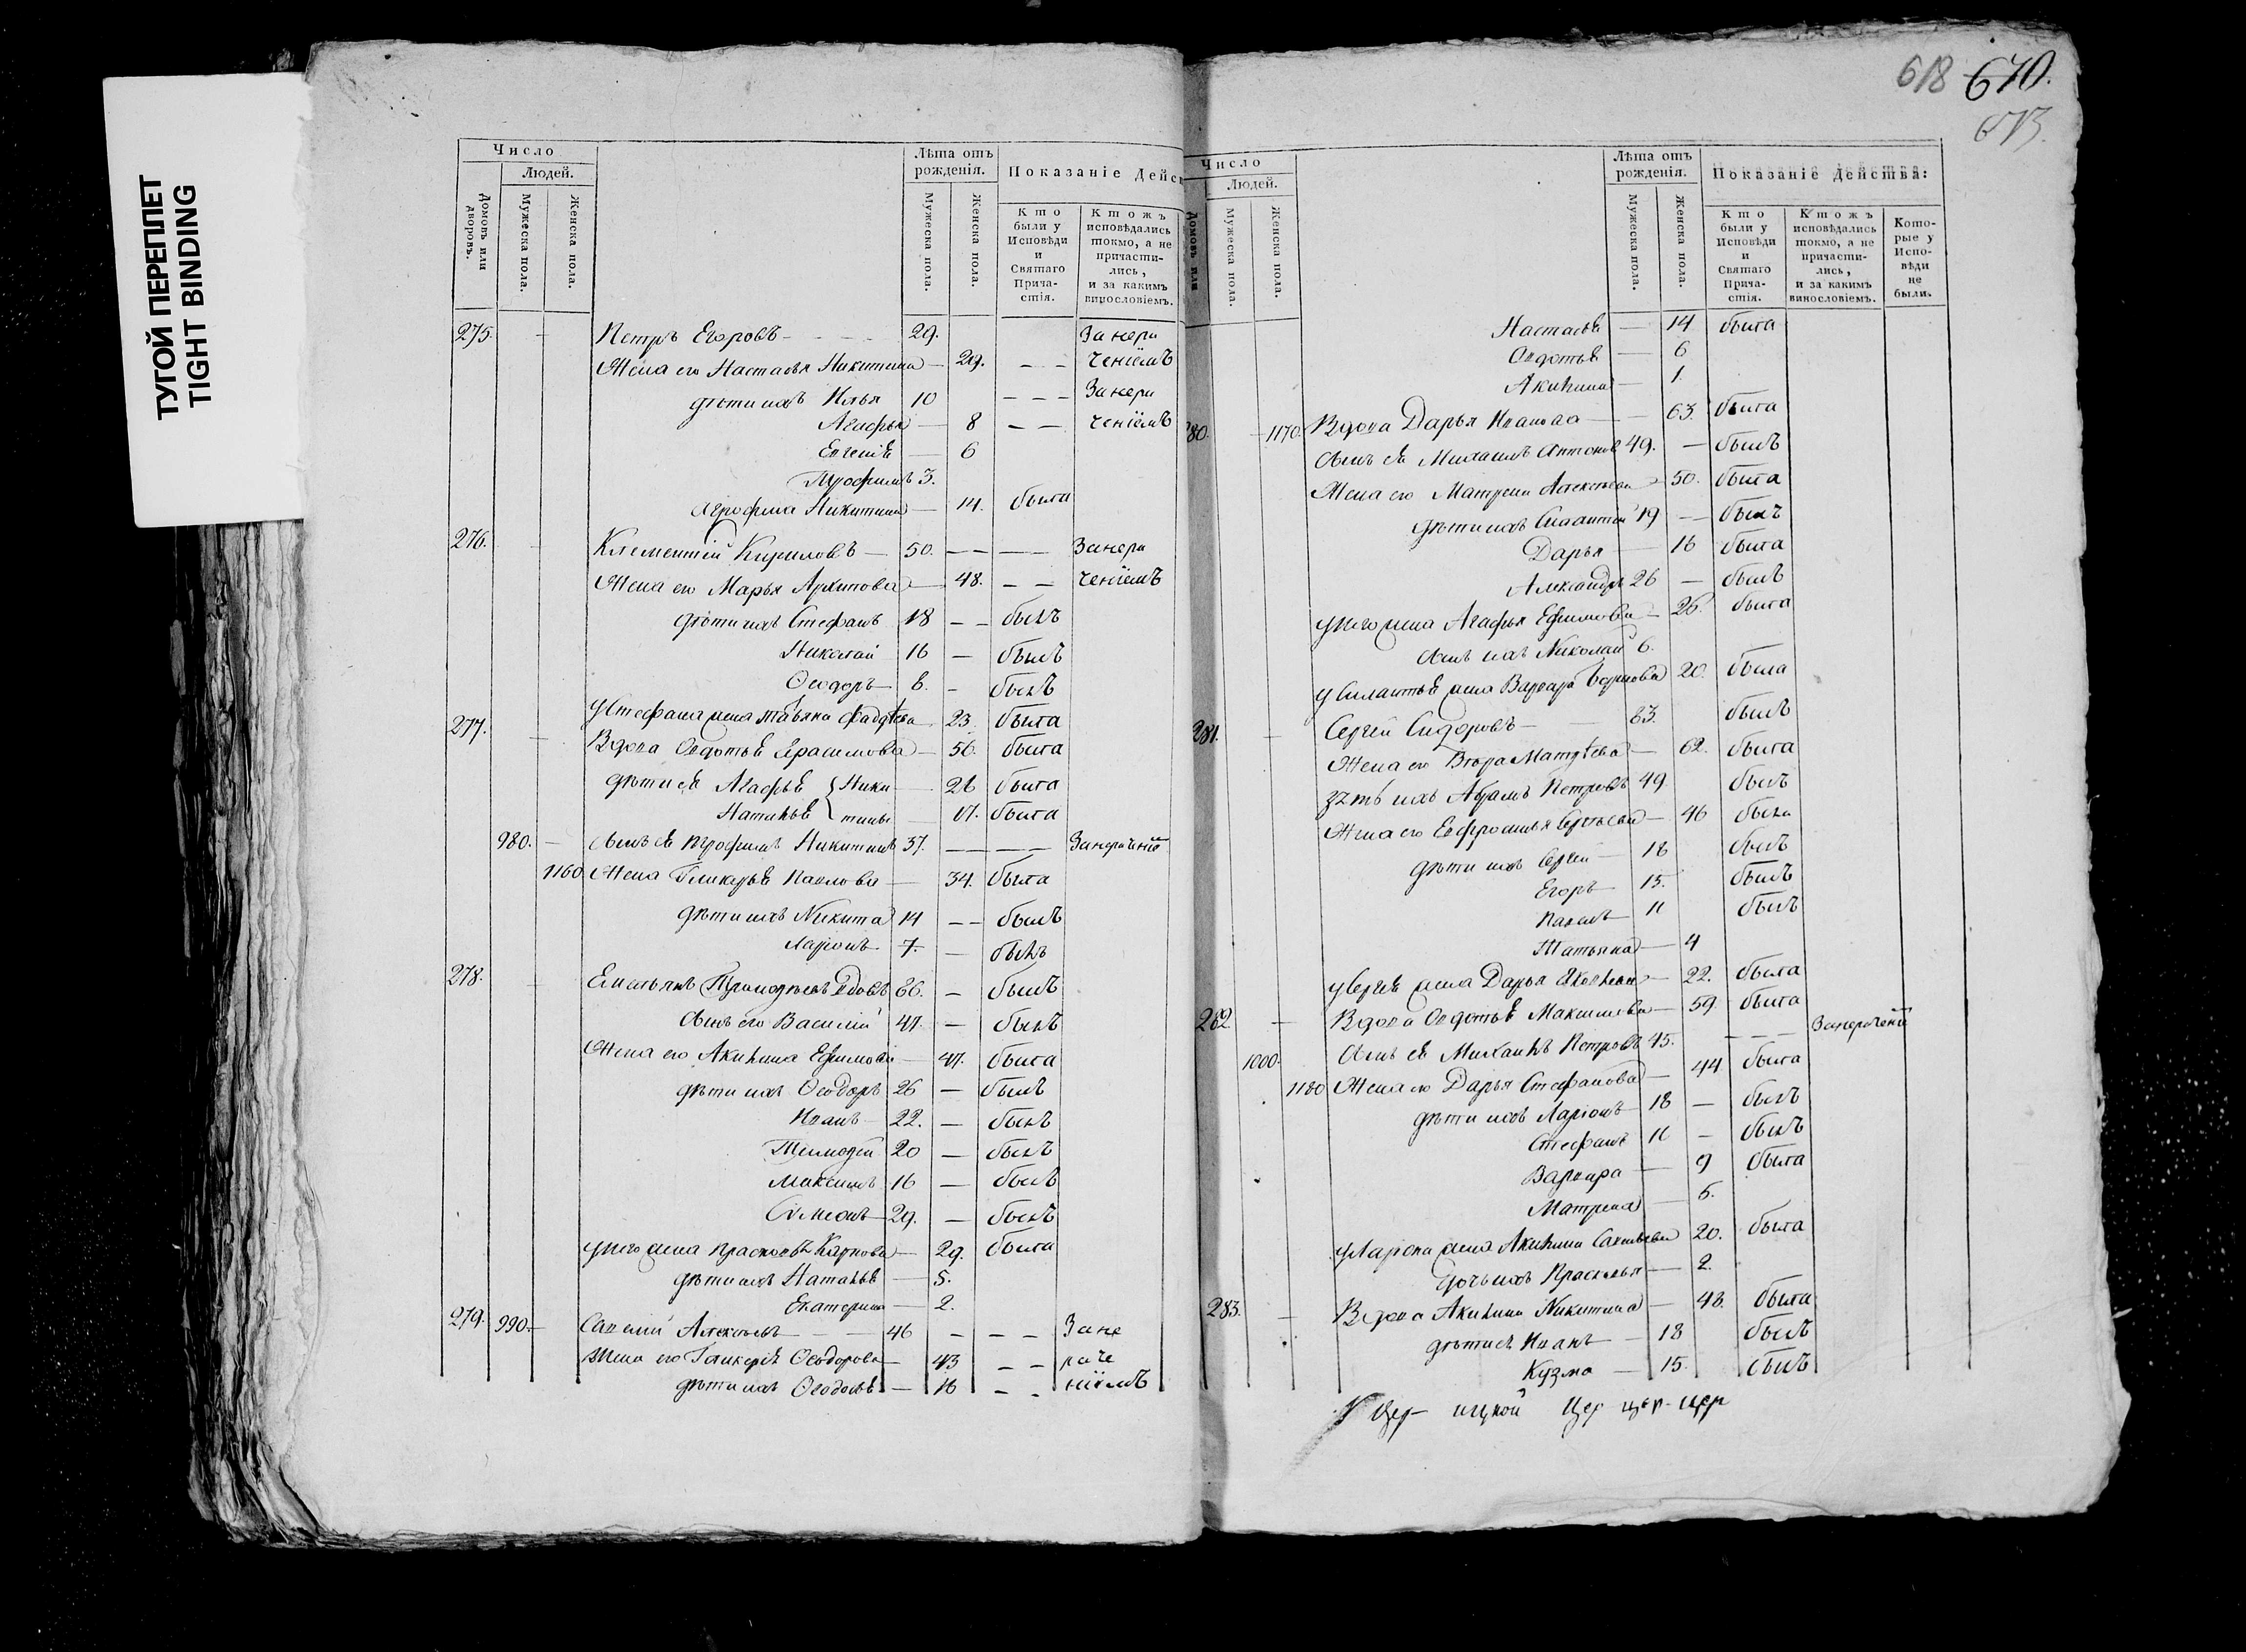 ТУГОЙ ПЕРЕПЛЕТ
TIGHT BINDING
Число
Людей.
Домовъ или дворовъ.
Мужеска пола.
Женска пола.
Лѣта отъ рожденія.
Мужеска пола.
Женска пола.
Показаніе Дейс
Кто были у Исповѣди и Святаго Прича-стія.
Ктожъ исповѣдались токмо, а не причасти-лись, и за какимъ винословіемъ.
275. Петръ Егоровъ 29. За нера
Жена его Настасья Никитина 29. ченіемъ
дѣти ихъ Илья 10 За нера
Агафья 8 ченіемъ
Евгенія 6
Трофимъ 3.
Никитина 14. была
276. Климентій Кириловъ 50. За нера
Жена его Марья Архипова 48. ченіемъ
дѣти ихъ Стефанъ 18 былъ
Николай 16 былъ
Ѳеодоръ 8. былъ
у Стефана жена Татьяна 23. была
277. Вдова Авдотья Герасимова 56. была
дѣти ея Агафья Ники 26 была
Наталья тины 17. была
980. сынъ ея Трофимъ Никитинъ 37. За нераченіе
1160 Жена Гликерья Павлова 34. была
дѣти ихъ Никита 14 былъ
Ларіонъ 7. былъ
278. Емельянъ 66. былъ
сынъ его Василій 47. былъ
Жена его Акилина Ефимова 47. была
дѣти ихъ Ѳеодоръ 26 былъ
Иванъ 22. былъ
Тимоѳей 20 былъ
Максимъ 16 былъ
Симеонъ 29. былъ
у него жена Прасковья Карпова 29. была
дѣти ихъ Наталья 5.
Екатерина 2.
279. 990. Савелій Алексѣевъ 46 За не
Жена его Гликерія Ѳеодорова 43 раче
дѣти ихъ Ѳеодосья 16 ніемъ
618 670.
673
Число
Людей.
Домовъ или
Мужеска пола.
Женска пола.
Лѣта отъ рожденія.
Мужеска пола.
Женска пола.
Показаніе Действа:
Кто были у Исповѣди и Святаго Прича-стія.
Ктожъ исповѣдались токмо, а не причасти-лись, и за какимъ винословіемъ.
Кото-рые у Испо-вѣди не были.
Настасья 14 была
Авдотья 6
Акилина 1.
280. 1170. Вдова Дарья Иванова 63. была
сынъ ея Михаилъ Антоновъ 49. былъ
Жена его Матрена Алексѣева 50. была
дѣти ихъ Силантій 19 былъ
Дарья 16 была
Александръ 26 былъ
у него жена Агафья Ефимова 26. была
сынъ ихъ Николай 6.
у Силантья жена Варвара 20. была
281. Сергей Сидоровъ 63. былъ
Жена его Матѳѣева 62. была
зять ихъ Абрамъ Петровъ 49. былъ
Жена его Евфросинья Сергѣева 46 была
дѣти ихъ Сергей 18 былъ
Егоръ 15. былъ
Павелъ 11 былъ
Татьяна 4
у Сергея жена Дарья Яковлева 22. была
282 Вдова Авдотья Максимова 59. была
1000. сынъ ея Михаилъ Петровъ 45. За нераченіе
1180 Жена его Дарья Стефанова 44 была
дѣти ихъ Ларіонъ 18 былъ
Стефанъ 11 былъ
Варвара 9 была
Матрена 6.
у Ларіона жена Акилина 20. была
дочь ихъ Прасковья 2.
283. Вдова Акилина Никитина 48. была
дѣти ея Иванъ 18 былъ
Кузма 15. былъ